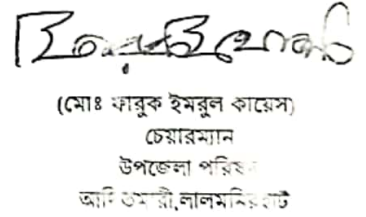 (মোঃ ফারুক ইমরুল কায়েস)
চেয়ারম্যান
উপজেলা পরিষদ
আদিতমারী,লালমনিরহাট